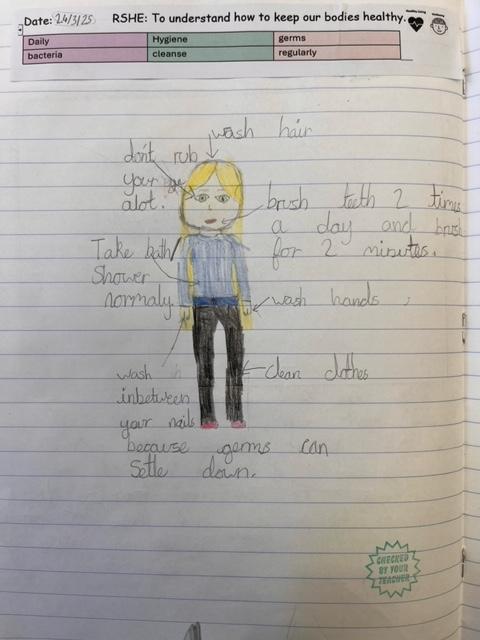 Date: 24/3/25
RSHE: To understand how to keep our bodies healthy.
Daily
Hygiene
germs
bacteria
cleanse
regularly
wash hair
don't rub
your
alot.
brush teeth 2 times
a day and brush
for 2 minutes.
Take bath/
Shower
normaly
wash hands
clean clothes
wash
inbetween
your nails
because germs can
Settle down.
CHECKED
BY YOUR
TEACHER